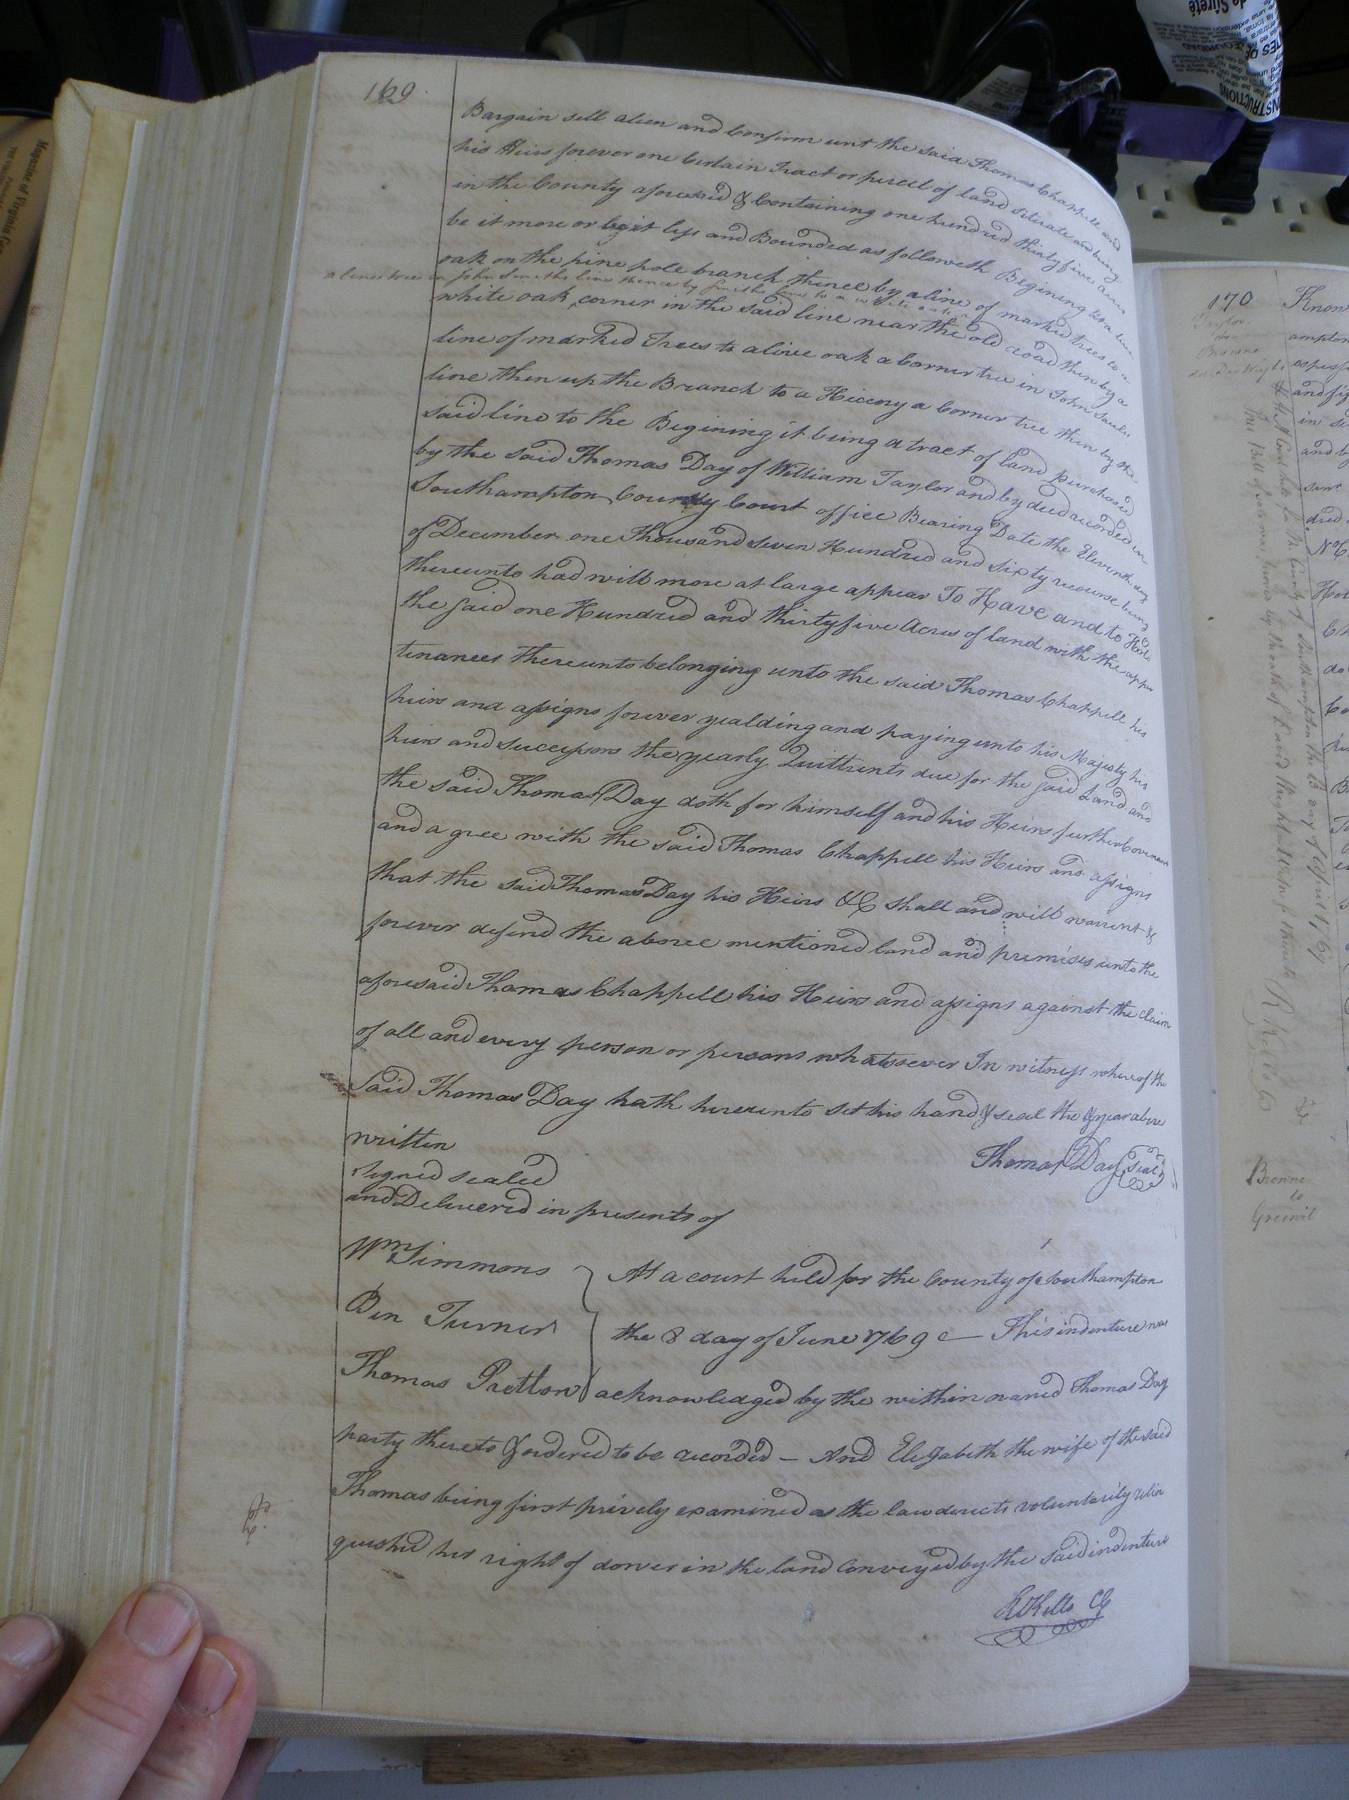 169
Bargain sell alien and Confirm unt the said Thomas Chappell and
his Heirs forever one Certain Tract or percel of land situate and being
in the County aforesaid & Containing one hundred thirty five acres
be it more or less and Bounded as followeth Begining at a line
oak on the pine pole branch thence by a line of marked trees to a
a line tree in John Smiths line thence by Smiths line to a white oak
white oak corner in the said line near the old road then by a
line of marked Trees to a live oak a Corner tree in John Sauls
line then up the Branch to a Hiccory a Corner tree then by the
said line to the Begining it being a tract of land purchased
by the said Thomas Day of William Taylor and by deed recorded in
Southampton County Court office Bearing Date the Eleventh day
of December one Thousand seven Hundred and sixty recourse being
thereunto had will more at large appear To Have and to Hold
the said one Hundred and thirtyfive Acres of land with the appu
tenances thereunto belonging unto the said Thomas Chappell his
heirs and assigns forever yealding and paying unto his Majesty his
heirs and successors the yearly Quittrents due for the said Land and
the said Thomas Day doth for himself and his Heirs further Covenant
and a gree with the said Thomas Chappell his Heirs and assigns
that the said Thomas Day his Heirs &C shall and will warrent &
forever defend the above mentioned land and premises unto the
aforesaid Thomas Chappell his Heirs and assigns against the claim
of all and every person or persons whatsoever In witness whereof the
Said Thomas Day hath hereunto set his hand & seal the & year above
written
Thomas Day Seal
Signed sealed
and Delivered in presents of
Wm Simmons
Ben Turner
Thomas Pretlow
At a court held for the County of Southampton
the 8 day of June 1769 This indenture was
acknowledged by the within named Thomas Day
party thereto & ordered to be recorded - And Elizabeth the wife of the said
Thomas being first privily examined as the law directs voluntarily relin
quished her right of dower in the land Conveyed by the said indenture
R Kello CC
170
Know
Taylor
to
Browne
ampton
and fi
in
and by
dred
No
Browne
to
Greenil
INSTRUCTIONS
Magazine of Virginia Ge